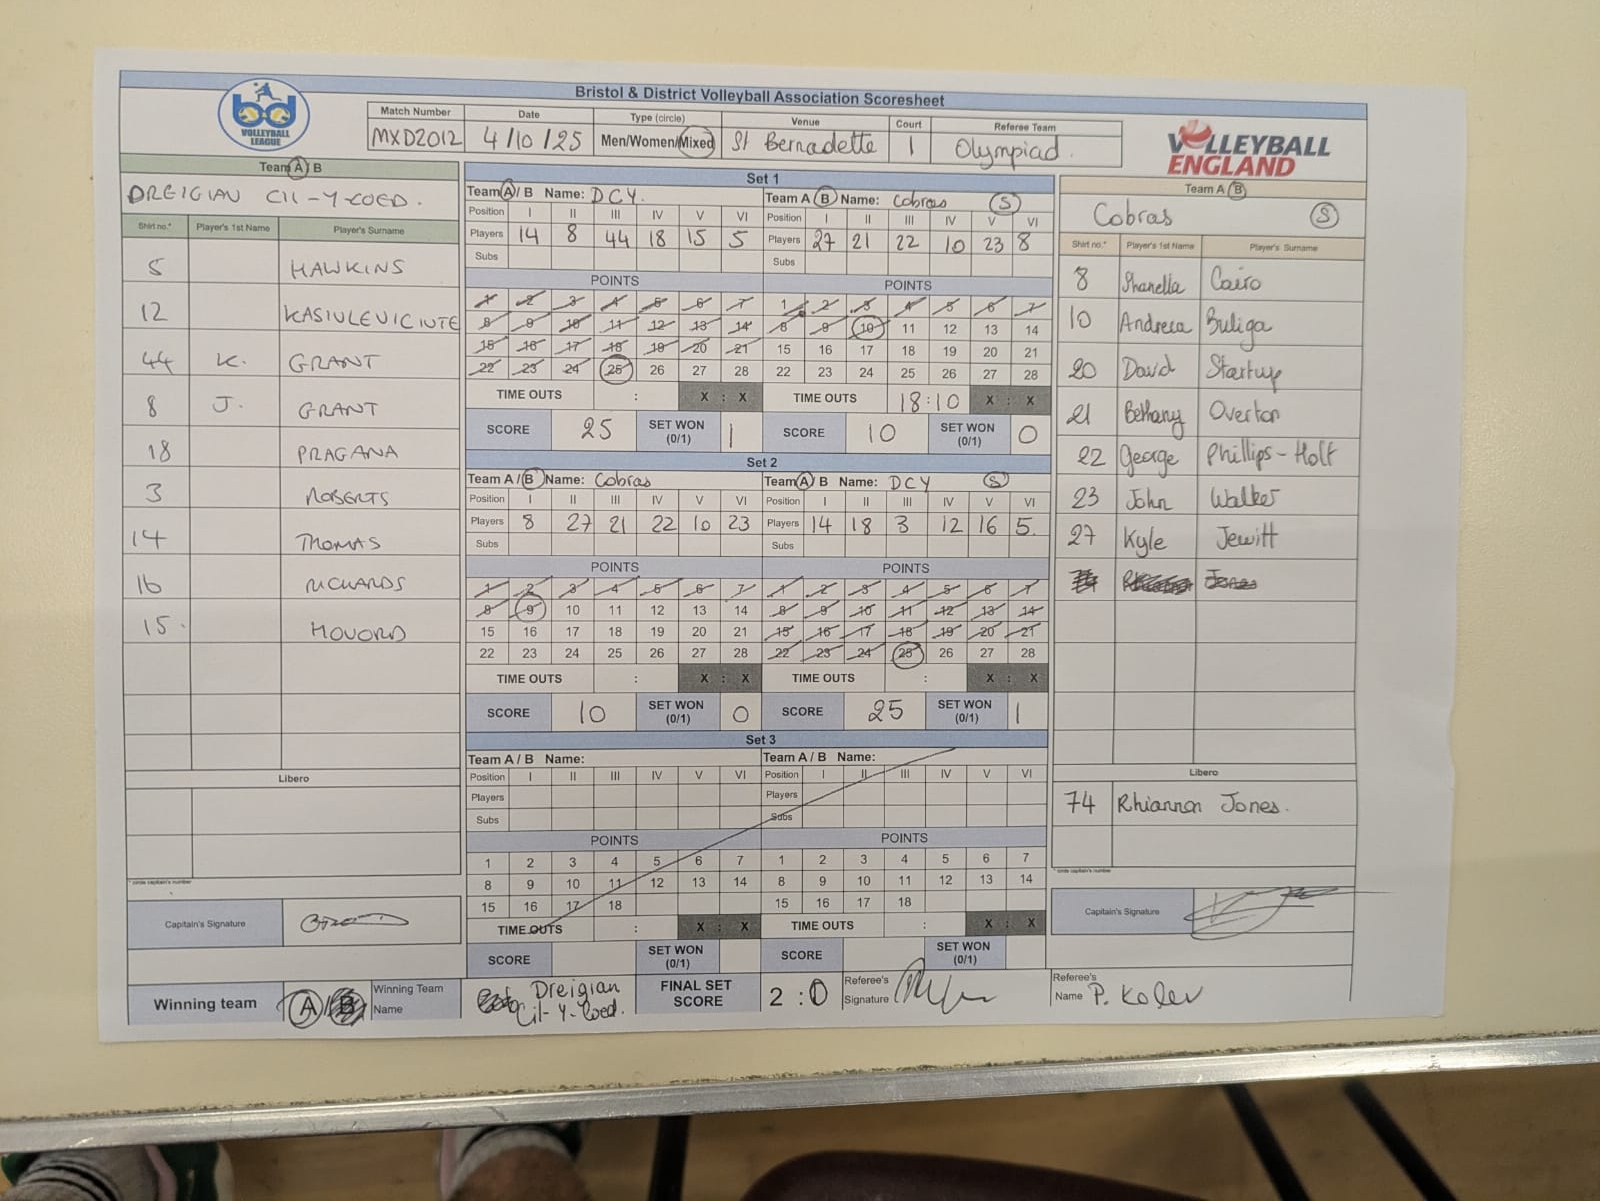 Bristol & District Volleyball Association Scoresheet
bd VOLLEYBALL LEAGUE
Match Number Date Type (circle) Venue Court Referee Team
MXD2012 4/10/25 Men/Women/Mixed St Bernadette 1 Olympiad.
VOLLEYBALL ENGLAND
Team A/ B
DREIGIAU CIL-Y-COED.
Shirt no.* Player's 1st Name Player's Surname
5 HAWKINS
12 KASIULEVICIUTE
44 K. GRANT
8 J. GRANT
18 PRAGANA
3 ROBERTS
14 THOMAS
16 RICHARDS
15.
Libero
* circle captain's number
Captain's Signature
Set 1
Team A/ B Name: DCY. Team A / B Name: Cobras S
Position I II III IV V VI Position I II III IV V VI
Players 14 8 44 18 15 5 Players 27 21 22 10 23 8
Subs Subs
POINTS POINTS
1 2 3 4 5 6 7 1 2 3 4 5 6 7
8 9 10 11 12 13 14 8 9 10 11 12 13 14
15 16 17 18 19 20 21 15 16 17 18 19 20 21
22 23 24 25 26 27 28 22 23 24 25 26 27 28
TIME OUTS : X : X TIME OUTS 18:10 X : X
SCORE 25 SET WON (0/1) 1 SCORE 10 SET WON (0/1) 0
Set 2
Team A / B Name: Cobras Team A/ B Name: DCY S
Position I II III IV V VI Position I II III IV V VI
Players 8 27 21 22 10 23 Players 14 18 3 12 16 5.
Subs Subs
POINTS POINTS
1 2 3 4 5 6 7 1 2 3 4 5 6 7
8 9 10 11 12 13 14 8 9 10 11 12 13 14
15 16 17 18 19 20 21 15 16 17 18 19 20 21
22 23 24 25 26 27 28 22 23 24 25 26 27 28
TIME OUTS : X : X TIME OUTS : X : X
SCORE 10 SET WON (0/1) 0 SCORE 25 SET WON (0/1) 1
Set 3
Team A / B Name: Team A / B Name:
Position I II III IV V VI Position I II III IV V VI
Players Players
Subs Subs
POINTS POINTS
1 2 3 4 5 6 7 1 2 3 4 5 6 7
8 9 10 11 12 13 14 8 9 10 11 12 13 14
15 16 17 18 15 16 17 18
TIME OUTS : X : X TIME OUTS : X : X
SCORE SET WON (0/1) SCORE SET WON (0/1)
Team A / B
Cobras S
Shirt no.* Player's 1st Name Player's Surname
8 Shanella Cairo
10 Andreea Buliga
20 David Startup
21 Bethany Overton
22 George Phillips-Holt
23 John Walker
27 Kyle Jewitt
Jones
Libero
74 Rhiannon Jones.
* circle captain's number
Captain's Signature
Winning team A / B Winning Team Name Dreigiau Cil-Y-Coed. FINAL SET SCORE 2 : 0 Referee's Signature Referee's Name P. Kolev